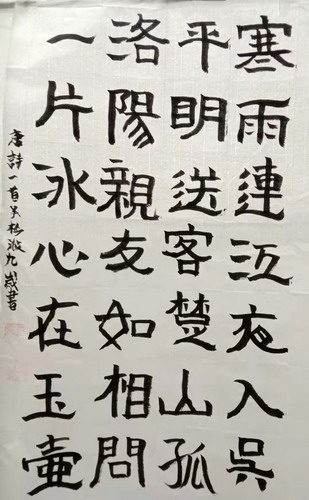 寒雨連江夜入吳
平明送客楚山孤
洛陽親友如相問
一片冰心在玉壺
唐詩一首 九歲書